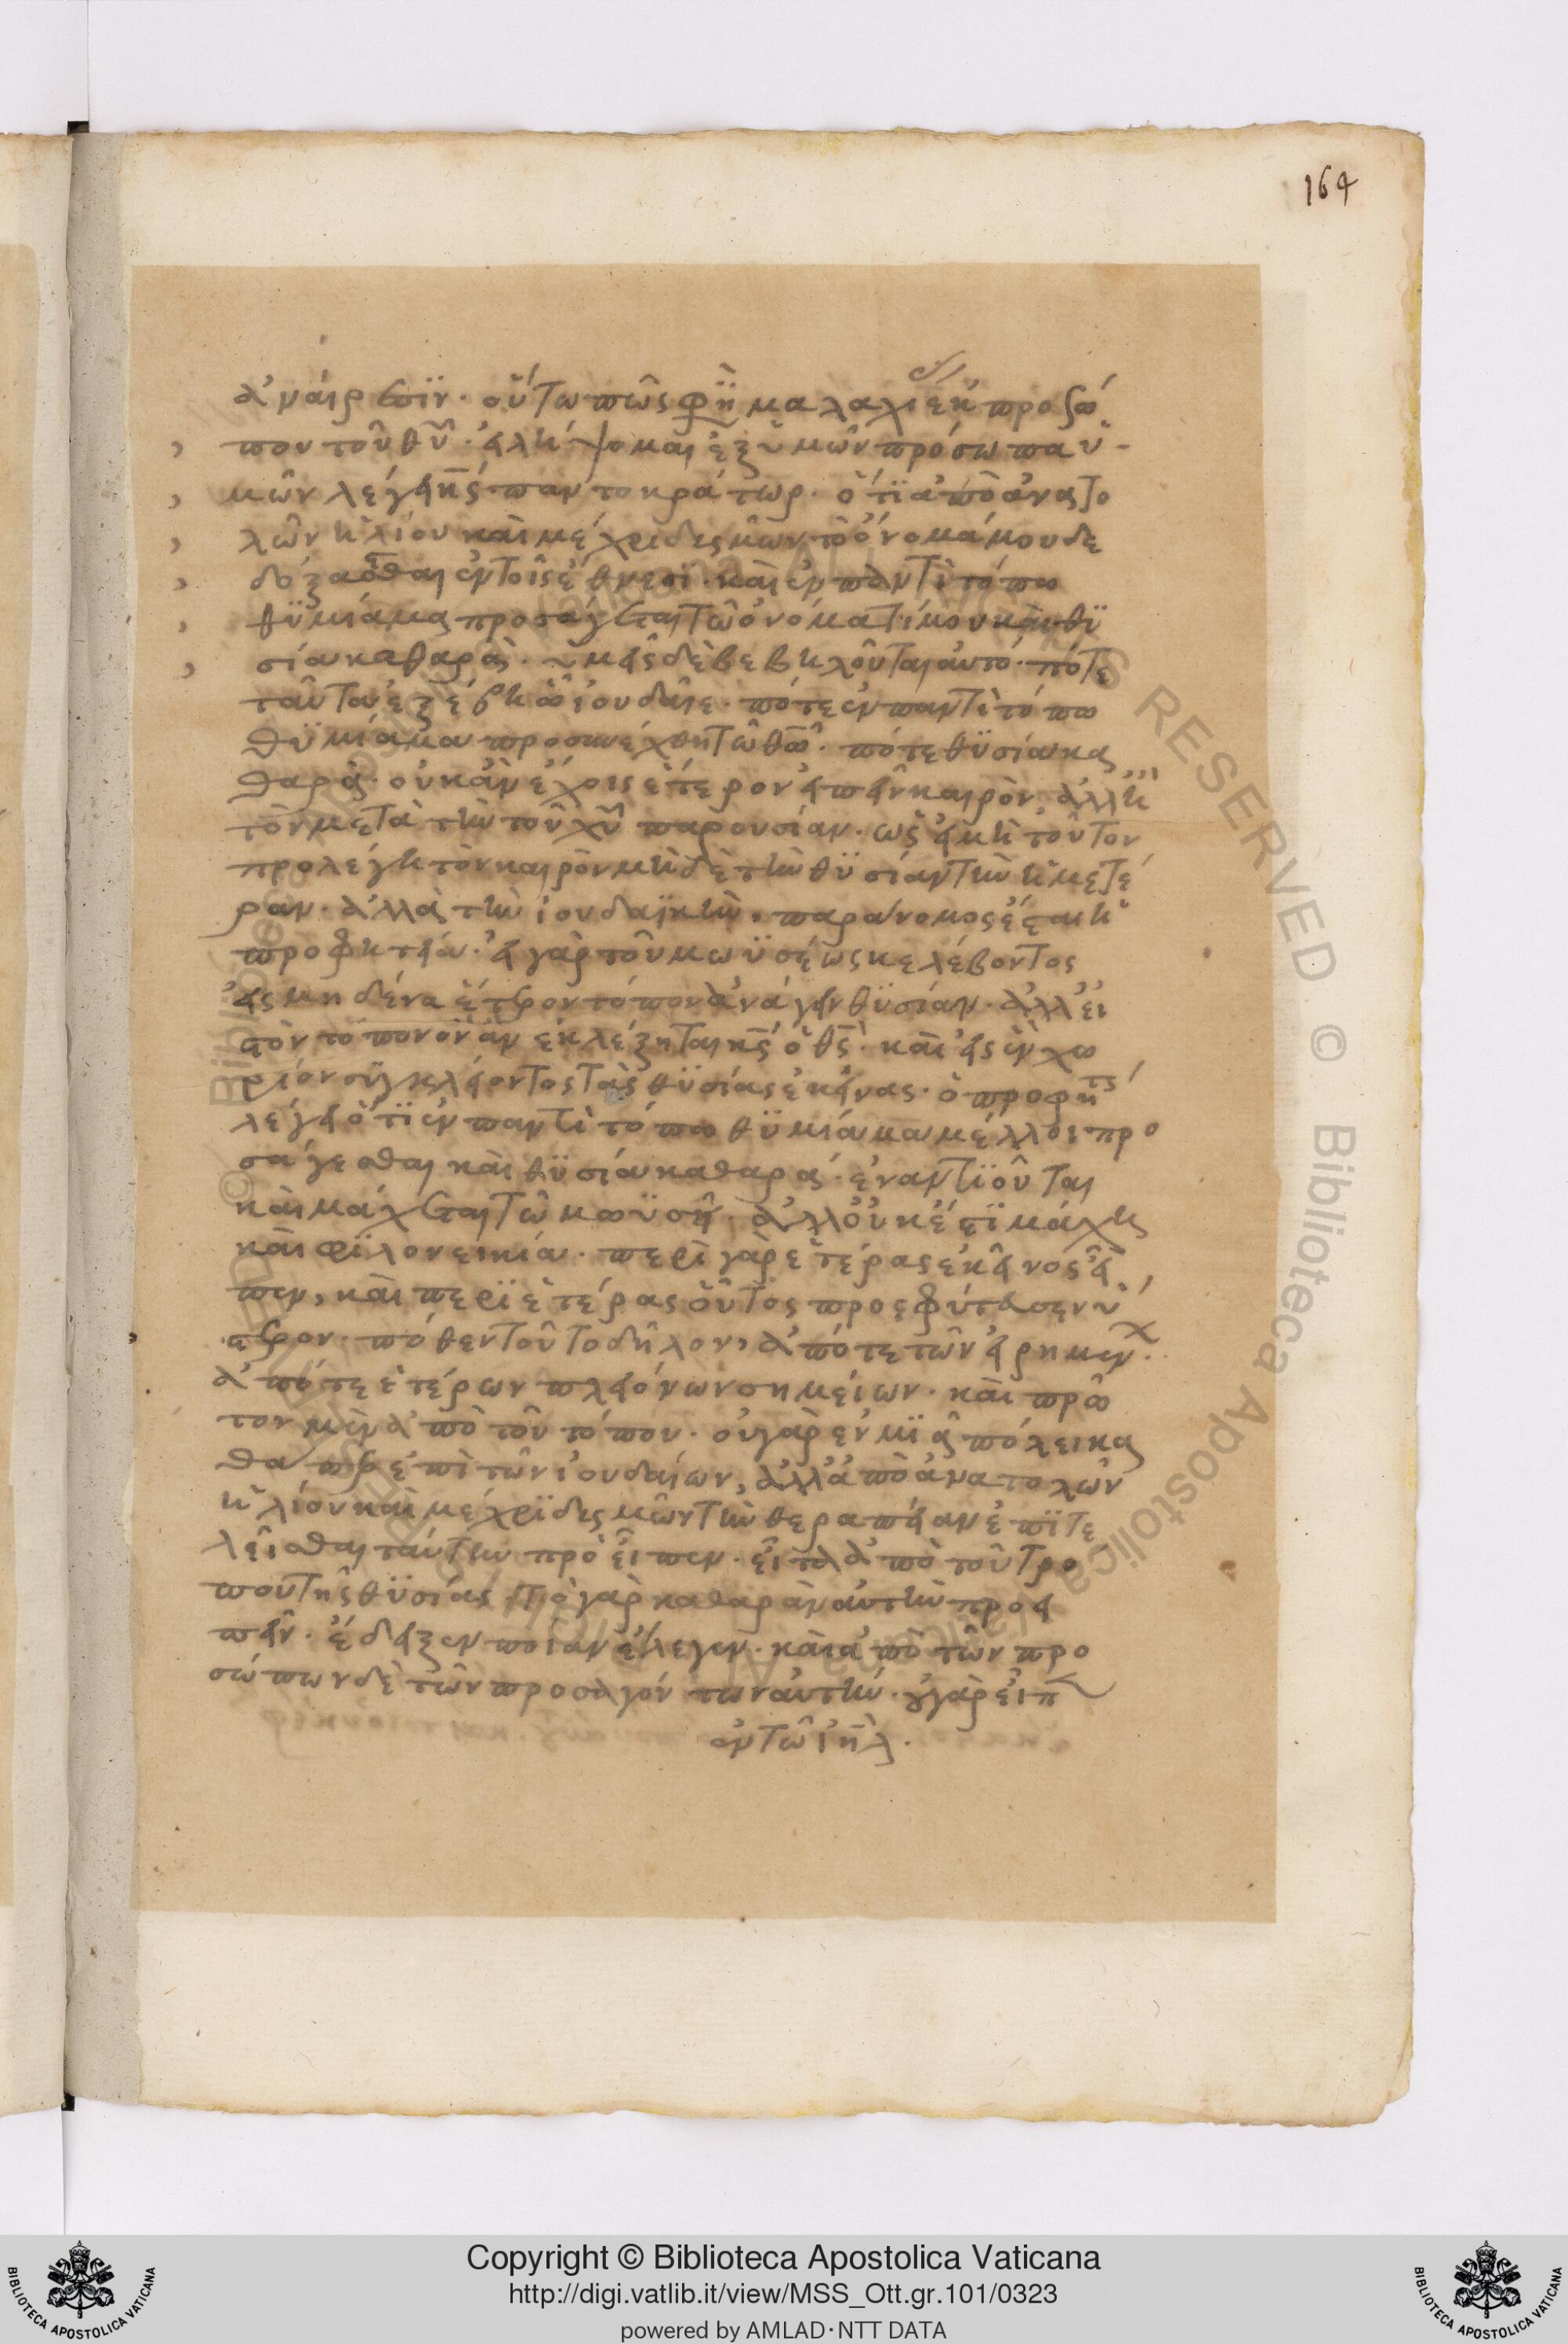 164
ἀναίρεσϊν· οὕτω πῶς φη̈̀ μαλαχί ἐκ προσώ
που τοῦ θῡ· εἰ λήψομαι ἐξ ὑμῶν πρόσωπα ὑ-
μῶν λέγει κ̅ς παντοκράτωρ· ὅτϊ ἀπὸ ἀνατο
λῶν ἡλίου καὶ μέχρι δυσμῶν τὸ ὄνομά μου δε
δόξασθαι ἐν τοῖς ἔθνεσϊ· καὶ ἐν παντὶ τόπω
θϋμίαμα προσάγεται τῶ ὀνόματί μου καὶ θϋ
σία καθαρὰ· ὑμεῖς δὲ βεβηλοῦται αὐτό· πότε
ταῦτα ἐξέβη ὦ ἰουδαῖε· πότε ἐν παντὶ τόπω
θϋμίαμα προσηνέχθη τῶ θω̅· πότε θϋσία κα
θαρὰ· οὐκ ἂν ἔχοις ἕτερον εἰπεῖν καιρὸν, ἀλλ' ἢ
τὸν μετὰ τὴν τοῦ χ̅υ παρουσίαν· ὡς εἰ μὴ τοῦτον
προλέγη τὸν καιρὸν μὴ δὲ τὴν θϋσίαν τὴν ἡμετέ
ραν· ἀλλὰ τὴν ἰουδαϊκὴν, παράνομος ἔσται ἡ
προφητεία· εἰ γὰρ τοῦ μωϋσέως κελέβοντος
εἰς μηδένα ἕτερον τόπον ἀνάγειν θϋσίαν· ἀλλ' εἰ
τὸν τόπον ὃν ἂν ἐκλέξηται κ̅ς ὁ θ̅ς· καὶ εἰς ἓν χω
ρίον συγκλείοντος τὰς θϋσίας ἐκείνας· ὁ προφήτς
λέγει ὅτϊ ἐν παντὶ τόπω θϋμίαμα μέλλοι προ
σάγεσθαι καὶ θϋσία καθαρά· ἐναντϊοῦται
καὶ μάχεται τῶ μωϋσῆ· ἀλλ' οὐκ ἔστϊ μάχη
καὶ φϊλονεικία· περὶ γὰρ ἑτέρας ἐκεῖνος εἶ
πεν, καὶ περϊ ἑτέρας οὗτος προεφύτευσεν ὕ
στερον· πόθεν τοῦτο δῆλον, ἀπό τε τῶν εἰρημέν·
ἀπό τε ἑτέρων πλειόνων σημείων· καὶ πρῶ
τον μὲν ἀπὸ τοῦ τόπου· οὐ γὰρ ἐν μϊᾶ πόλει κα
θάπερ ἐπὶ τῶν ἰουδαίων, ἀλλ' ἀπὸ ἀνατολῶν
ἡλίου καὶ μέχρϊ δυσμῶν τὴν θεραπείαν ἐπϊτε
λεῖσθαι ταύτην πρὸ εἶπεν· εἶτα ἀπὸ τοῦ τρο
που τῆς θϋσίας· τὸ γὰρ καθαρὰν αὐτὴν προει
πεῖν· ἔδειξεν ποίαν ἔλεγεν· καὶ ἀπὸ τῶν προ
σώπων δὲ τῶν προσαγόντων αὐτήν· οὐ γὰρ εἶπ
ἐν τῶ ἰη̅λ·
Copyright © Biblioteca Apostolica Vaticana
http://digi.vatlib.it/view/MSS_Ott.gr.101/0323
powered by AMLAD·NTT DATA